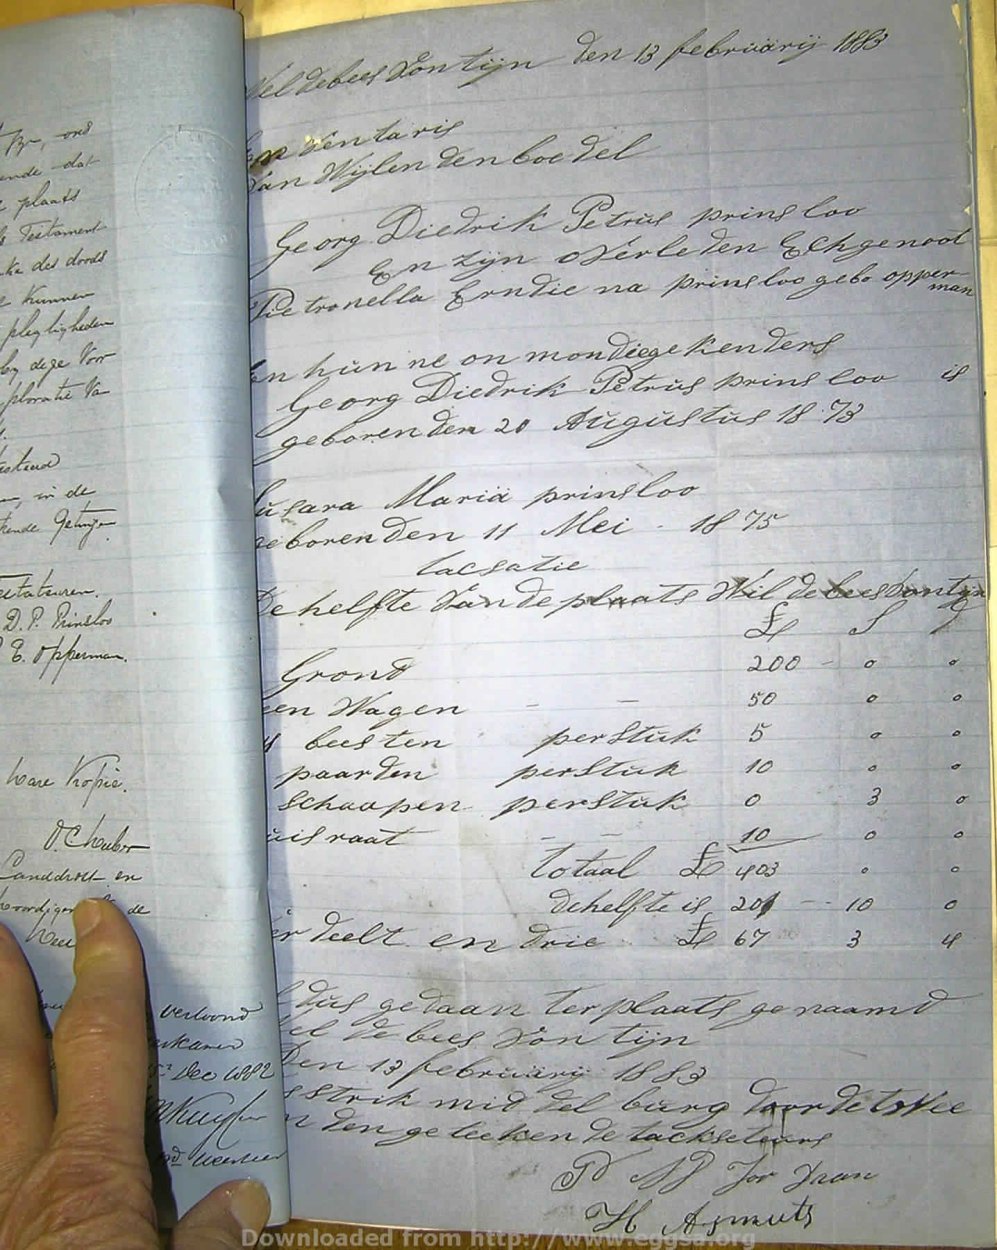 Tzr, ond
ende dat
plaats
Testament
ke des doods
kunnen
plegligheden
by deze Voor
ploratie Va
in de
tende Getuige
D. P. Prinsloo
E. Opperman.
ware Kopie.
Landdrost en
de
verloond
Dec 1882
Wel debees Fon tijn den 13 februärij 1883
ven taris
Van Wijlen den boe del
Georg Diedrik Petrus prinsloo
En zijn overleden Echgenoot
Pie tronella Erndie na prinsloo gebo opper
man
en hün ne on mondiege kenders
Georg Diedrik Petrüs prinsloo is
geboren den 20 Augüstüs 18 73
süsara Mariä prinsloo
geboren den 11 Mei - 18 75
tacsatie
De helfte van de plaats Wil de bees Fontyn
£ S
Grond 200 - 0 0
een Wagen - - 50 0 0
beesten perstük 5 0 0
paarden perstük 10 0 0
schaapen perstük 0 3 0
uisraat - - 10 0 0
totaal £ 403 0 0
de helfte is 201 - - 10 0
deelt en drie £ 67 3 4
düs gedaan ter plaats genaamd
Wel de bees Fon tijn
Den 13 februärij 1883
strik mid del bürg door de twee
den geteeken de tackseteurs
Jor Daan
H Asmuts
Downloaded from http://www.eggsa.org